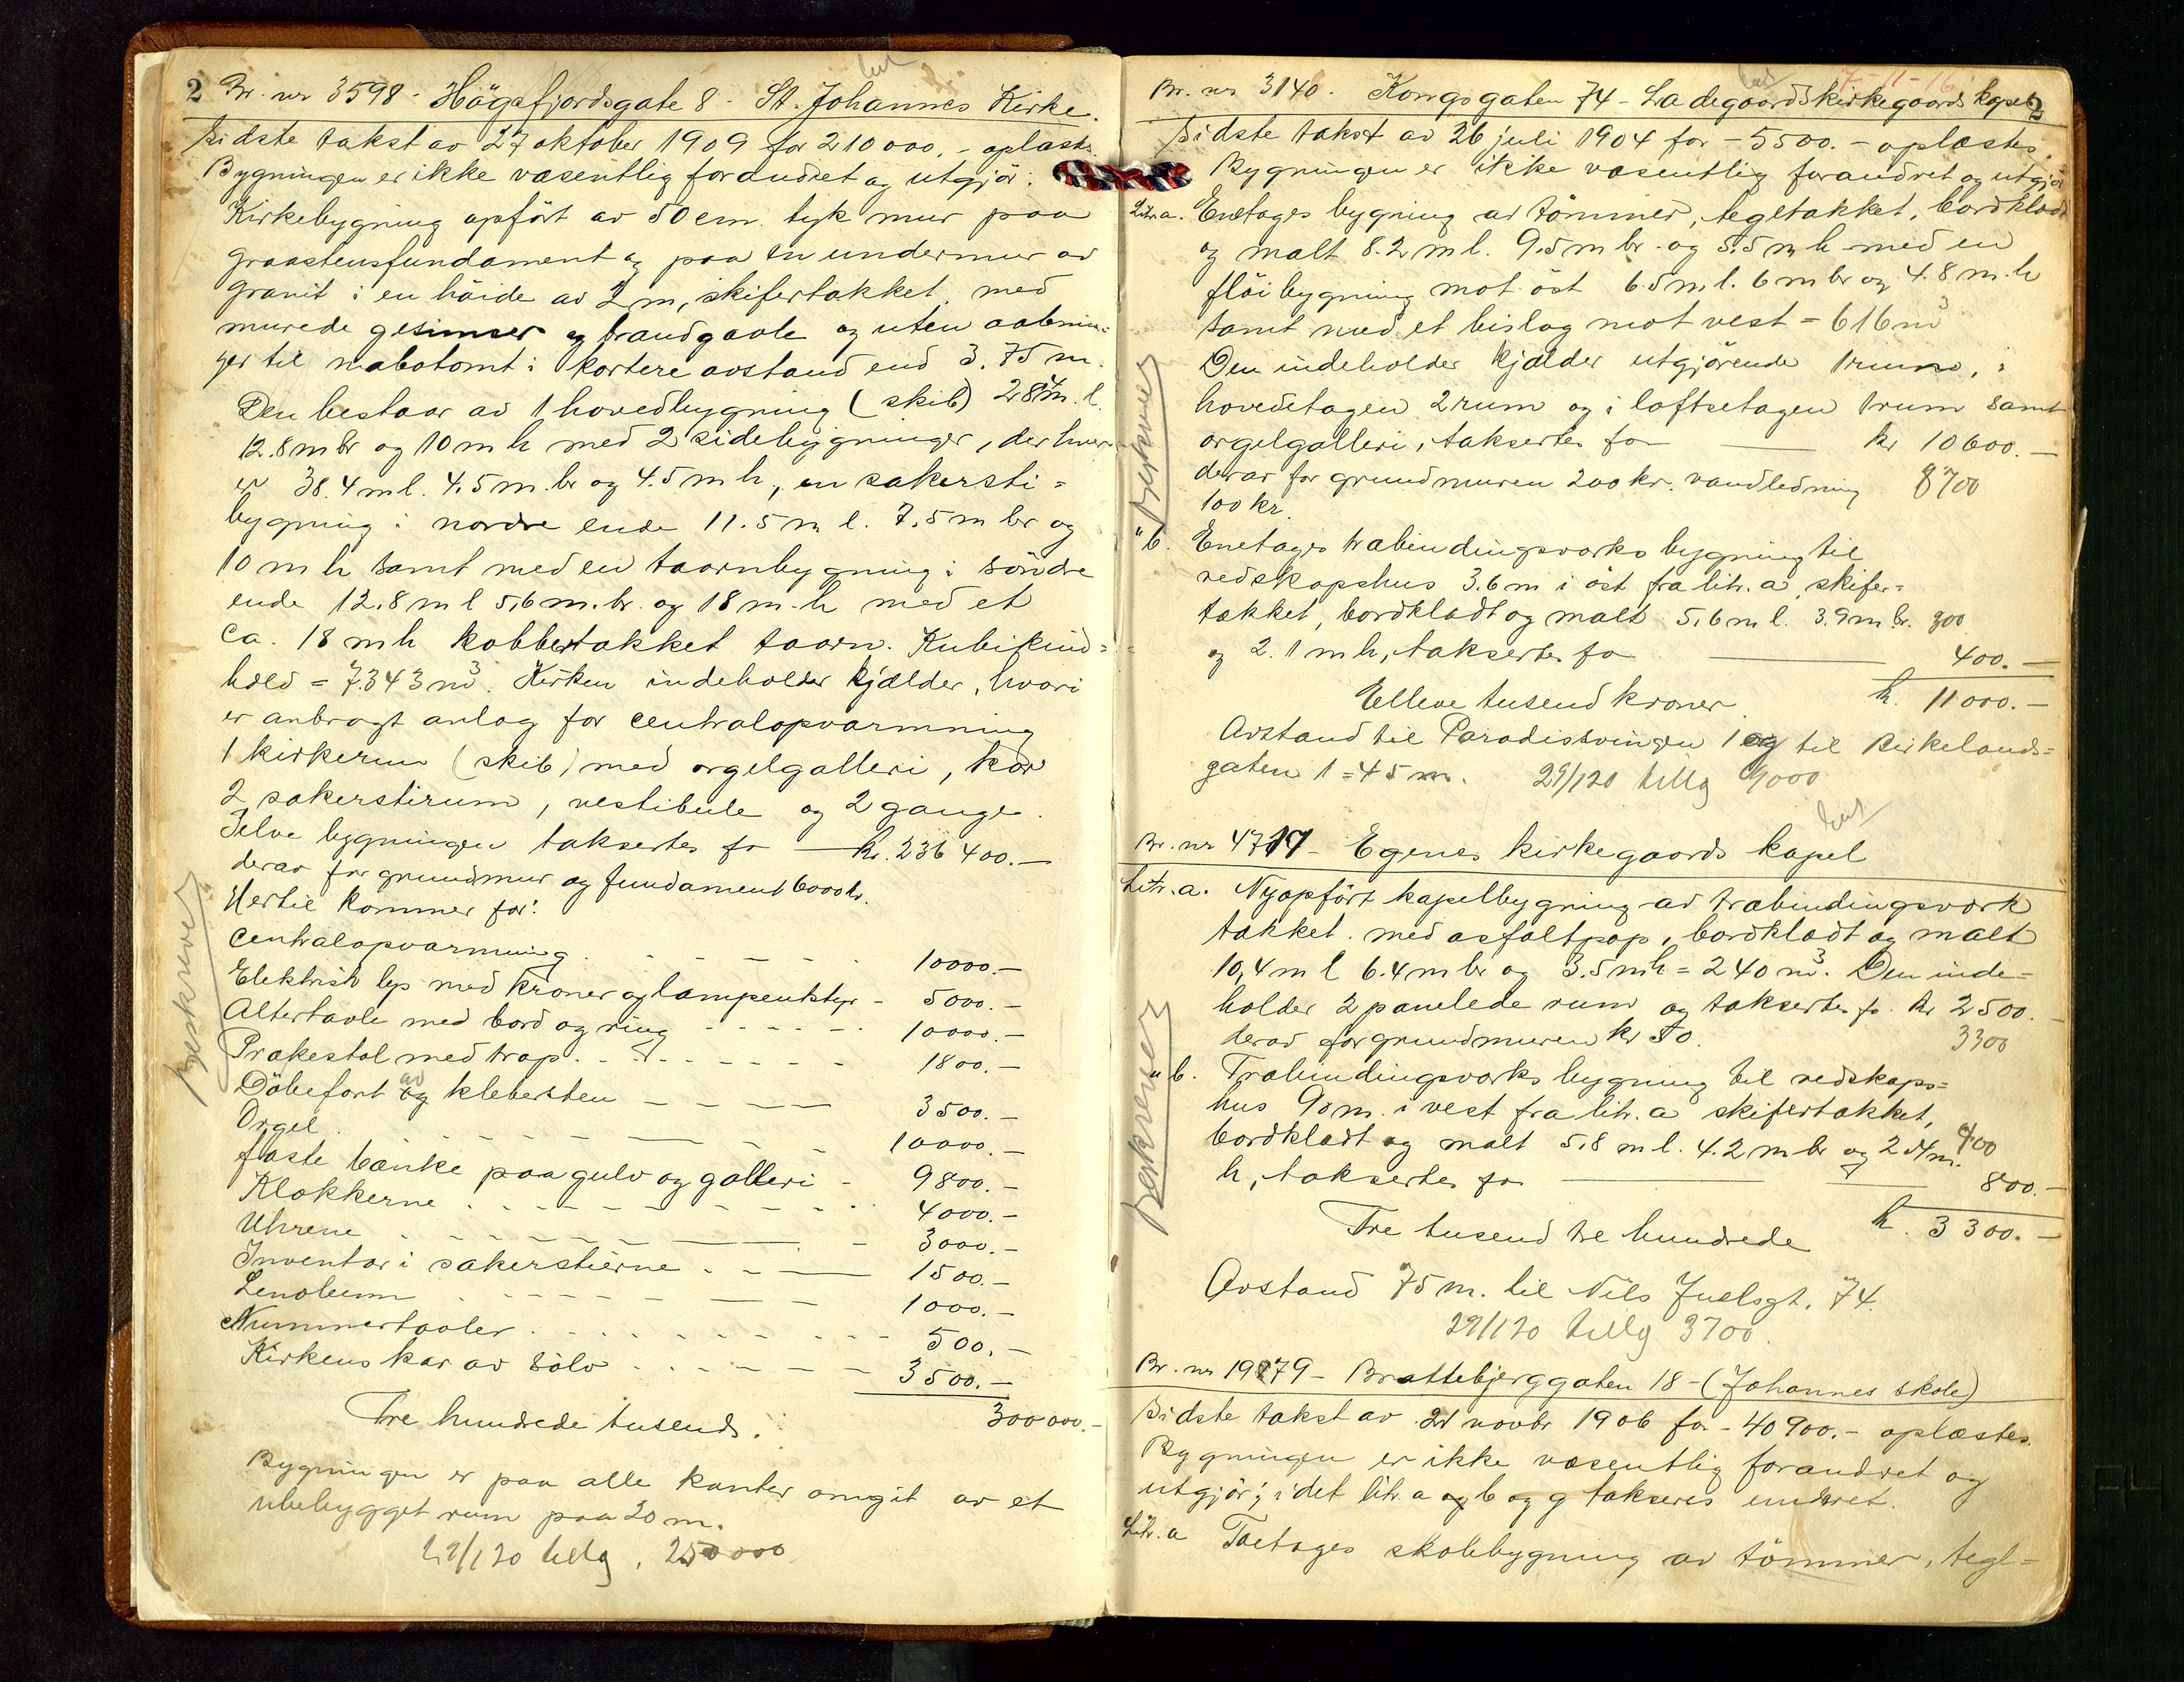 2 Br. nr 3598 - Högsfjordsgate 8 - St. Johannes Kirke.
Sidste takst av 27 oktober 1909 for 210000.- oplæstes.
Bygningen er ikke væsentlig forandret og utgjør:
Kirkebygning opført av 50 cm. tyk mur paa
graastensfundament og paa en undermur av
granit i en høide av 2 m, skifertækket med
murede gesimser og brandgavle og uten aabnin-
ger til nabotomt i kortere avstand end 3.75 m.
Den bestaar av 1 hovedbygning (skib) 28.4 m. l.
12.8 m br og 10 m h med 2 sidebygninger, der hver
er 38.4 m l. 4.5 m. br og 4.5 m h, en sakersti=
bygning i nordre ende 11.5 m l. 7.5 m br og
10 m h samt med en taarnbygning i søndre
ende 12.8 m l 5.6 m. br. og 18 m. h med et
ca. 18 m h kobbertækket taarn. Kubikind=
hold = 7343 m³. Kirken indeholder kjælder, hvori
er anbragt anlæg for centralopvarmning
1 kirkerum (skib) med orgelgalleri, kor
2 sakerstirum, vestibule og 2 gange.
Selve bygningen takseres for — kr. 236 400.—
derav for grundmur og fundament 6000 kr.
Hertil kommer for:
Centralopvarmning - - - - 10000.—
Elektrisk lys med kroner og lampeutstyr - 5000.—
Altertavle med bord og ring - - - - 10000.—
Prækestol med trap. - - - - 1800.—
Döbefont av klebersten - - - 3500.—
Orgel - - - - 10000.—
faste bænke paa gulv og galleri - 9800.—
Klokkerne - - - - 4000.—
Uhrene - - - - 3000.—
Inventar i sakerstierne - - - 1500.—
Lenoleum - - - - 1000.—
Nummertavler - - - - 500.—
Kirkens kar av sölv - - - - 3500.—
Tre hundrede tusend. 300 000.-
Bygningen er paa alle kanter omgit av et
ubebygget rum paa 20 m.
29/1 20 tillæg. 250000
Beskrevet
Br. nr 3140. Kongsgaten 74 - Ladegaardskirkegaards kapel 2
7-11-16
Sidste takst av 26 juli 1904 for - 5500.- oplæstes.
Bygningen er ikke væsentlig forandret og utgjør
Litr. a. Enetages bygning av tömmer, tegltækket, bordklædt
og malt 8.2 m l. 9.5 m br. og 5.5 m h med en
flöibygning mot öst 6.5 m l. 6 m br og 4.8 m. h
samt med et bislag mot vest = 616 m³
Den indeholder kjælder utgjörende 1 rum, i
hovedetagen 2 rum og i loftsetagen 1 rum samt
orgelgalleri, takseres for — kr 10600.—
derav for grundmuren 200 kr. vandledning 8700
100 kr.
" b. Enetages træbindingsverks bygning til
redskapshus 3.6 m i öst fra litr. a, skifer=
tækket, bordklædt og malt 5.6 m l. 3.9 m br. 300
og 2.1 m h, takseres for — 400.—
Elleve tusend kroner kr. 11000.—
Avstand til Paradissvingen 1 og til Birkelands=
gaten 1 = 45 m. 29/1 20 tillæg 9000
Beskrevet
Br. nr 4717 - Egenes kirkegaards kapel
Litr. a. Nyopfört kapelbygning av træbindingsverk
tækket med asfaltpap, bordklædt og malt
10,4 m l 6.4 m br og 3.5 m h = 240 m³. Den inde-
holder 2 panelede rum og takseres for kr 2500.-
derav for grundmuren kr 50. 3300
" b. Træbindingsverks bygning til redskaps=
hus 90 m. i vest fra litr. a skifertækket,
bordklædt og malt 5.8 m l. 4.2 m br og 2.4 m. 400
h, takseres for — 800.—
Tre tusend tre hundrede kr. 3300.—
Avstand 75 m. til Nils Juelsgt. 74.
29/1 20 tillæg 3700.
Beskrevet
Br. nr 1979 - Brattebjerggaten 18 - (Johannes skole)
Sidste takst av 21 novbr 1906 for - 40900.- oplæstes.
Bygningen er ikke væsentlig forandret og
utgjör; idet litr. a og b og g takseres underet.
Litr. a Toetages skolebygning av tömmer, tegl=